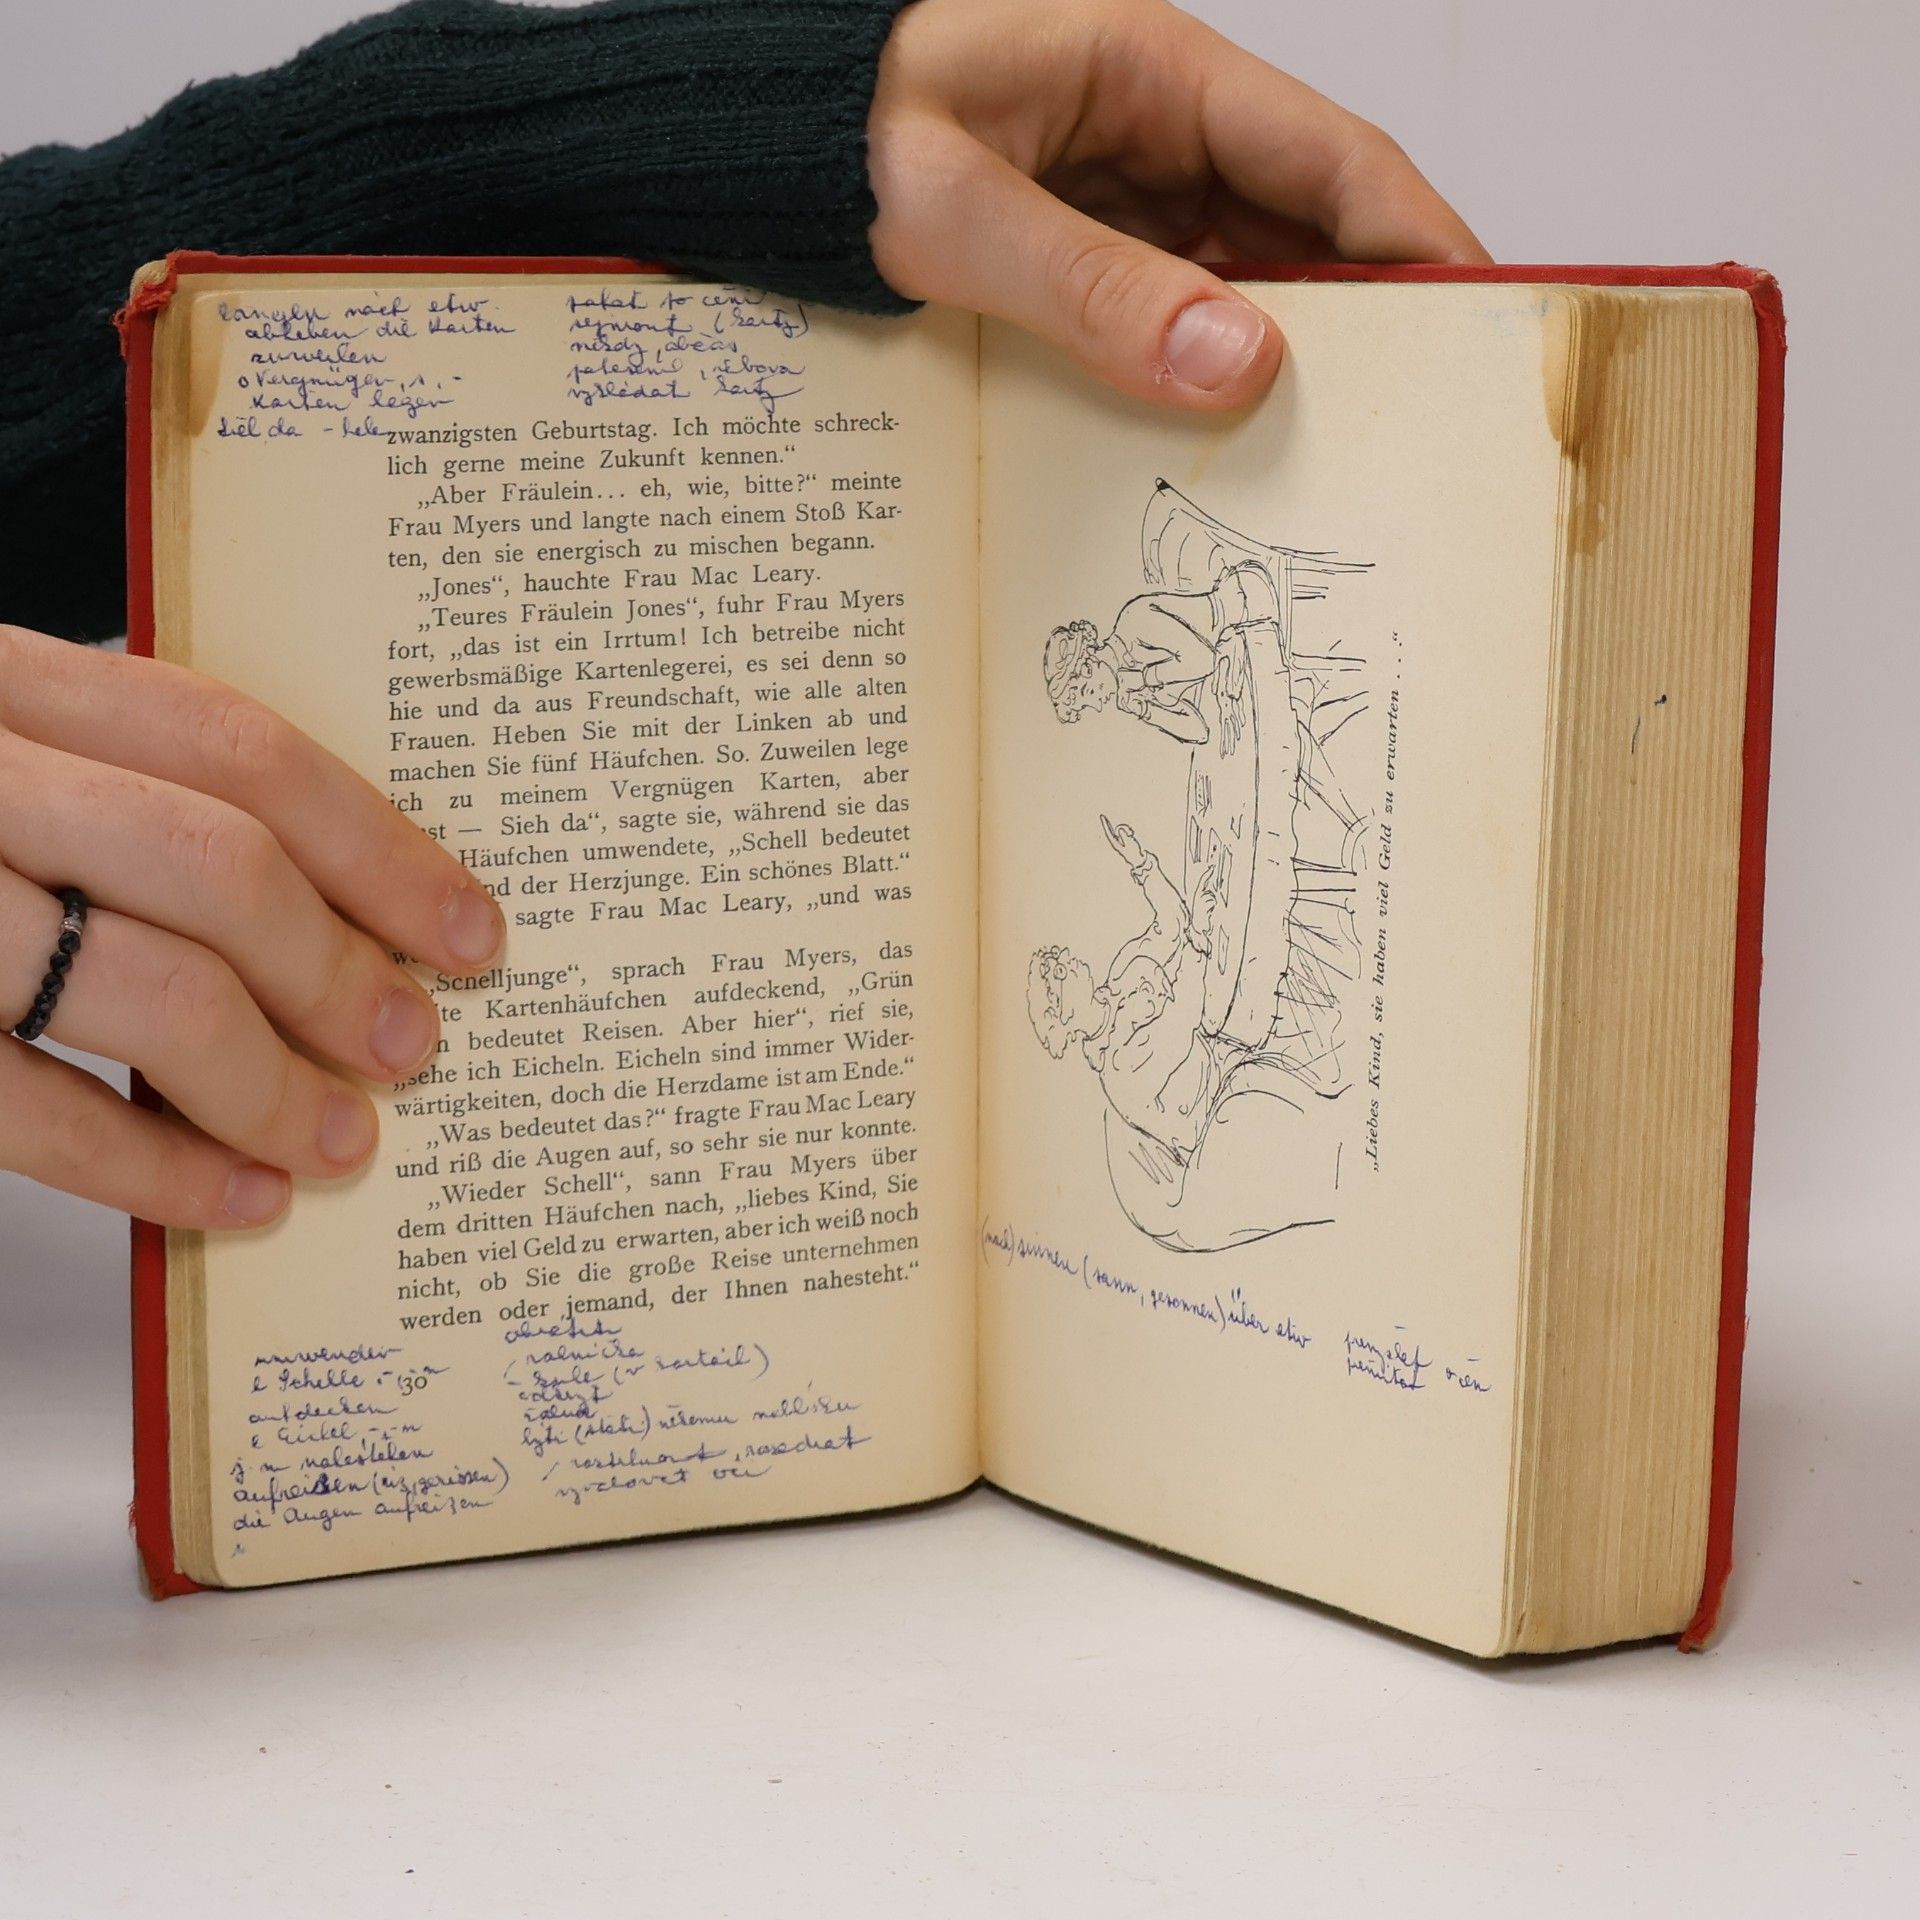 langen nach etw.
abheben die Karten
zuweilen
s Vergnügen, s, -
Karten legen
Sieh da - hele
sejmout (karty)
někdy, občas
vykládat karty
zwanzigsten Geburtstag. Ich möchte schreck-
lich gerne meine Zukunft kennen.“
„Aber Fräulein... eh, wie, bitte?“ meinte
Frau Myers und langte nach einem Stoß Kar-
ten, den sie energisch zu mischen begann.
„Jones“, hauchte Frau Mac Leary.
„Teures Fräulein Jones“, fuhr Frau Myers
fort, „das ist ein Irrtum! Ich betreibe nicht
gewerbsmäßige Kartenlegerei, es sei denn so
hie und da aus Freundschaft, wie alle alten
Frauen. Heben Sie mit der Linken ab und
machen Sie fünf Häufchen. So. Zuweilen lege
ich zu meinem Vergnügen Karten, aber
— Sieh da“, sagte sie, während sie das
Häufchen umwendete, „Schell bedeutet
der Herzjunge. Ein schönes Blatt.“
sagte Frau Mac Leary, „und was
„Schelljunge“, sprach Frau Myers, das
Kartenhäufchen aufdeckend, „Grün
bedeutet Reisen. Aber hier“, rief sie,
„sehe ich Eicheln. Eicheln sind immer Wider-
wärtigkeiten, doch die Herzdame ist am Ende.“
„Was bedeutet das?“ fragte Frau Mac Leary
und riß die Augen auf, so sehr sie nur konnte.
„Wieder Schell“, sann Frau Myers über
dem dritten Häufchen nach, „liebes Kind, Sie
haben viel Geld zu erwarten, aber ich weiß noch
nicht, ob Sie die große Reise unternehmen
werden oder jemand, der Ihnen nahesteht.“
umwenden
e Schelle -, -n
30
aufdecken
e Eichel, -, -n
j-m nahestehen
aufreißen (riß, gerissen)
die Augen aufreißen
obrátit
rolnička
- kule (v kartách)
odkrýt
žalud
býti (státi) někomu nablízku
„Liebes Kind, sie haben viel Geld zu erwarten . . .“
(nach) sinnen (sann, gesonnen) über etw